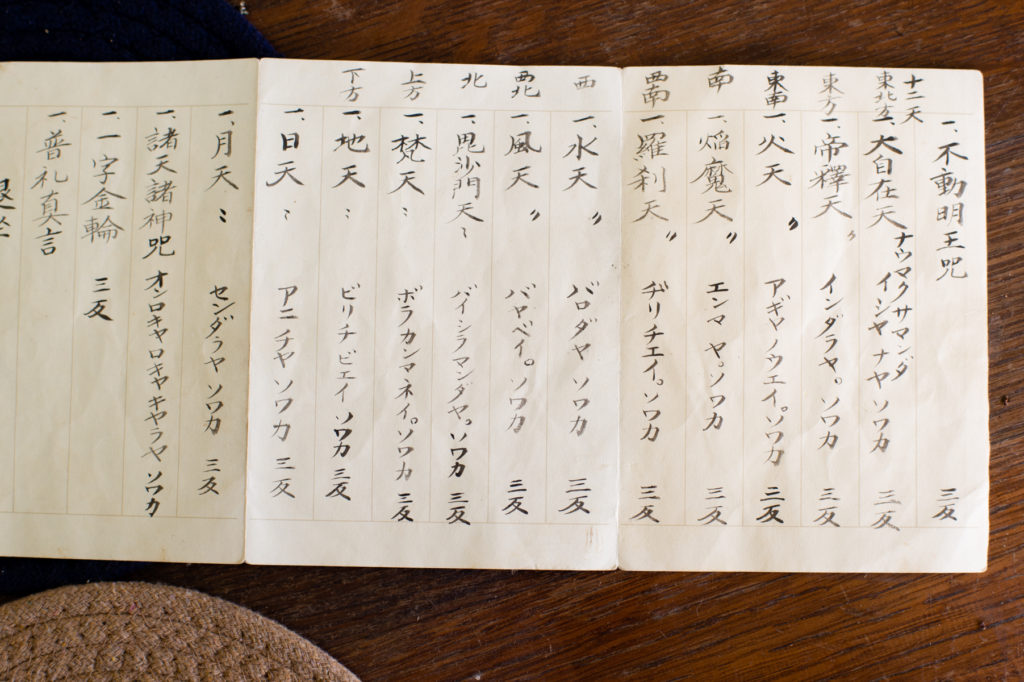 十二天
一、不動明王呪 三反
東北方 一、大自在天 ナウマクサマンダ イシヤナヤ ソワカ 三反
東方 一、帝釋天 〃 インダラヤ。ソワカ 三反
東南 一、火天 〃 アギヤノウエイ。ソワカ 三反
南 一、焔魔天 〃 エンマヤ。ソワカ 三反
西南 一、羅刹天 〃 ヂリチエイ。ソワカ 三反
西 一、水天 〃 バロダヤ ソワカ 三反
西北 一、風天 〃 バヤベイ。ソワカ 三反
北 一、毘沙門天〻 バイシラマンダヤ。ソワカ 三反
上方 一、梵天〻 ボラカンマネイ。ソワカ 三反
下方 一、地天〻 ビリチビエイ ソワカ 三反
一、日天〻 アニチヤ ソワカ 三反
一、月天〻 センダラヤ ソワカ 三反
一、諸天諸神呪 オンロキヤロキヤキヤラヤ ソワカ
一、一字金輪 三反
一、普礼真言